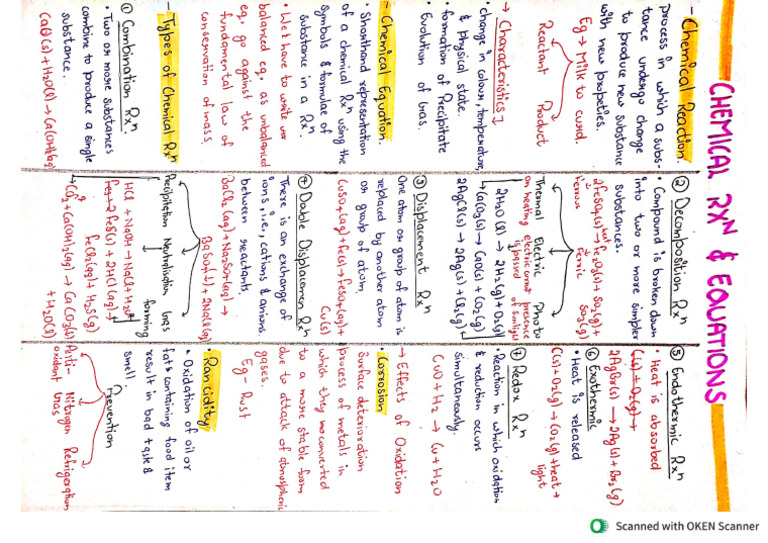 CHEMICAL RXN & EQUATIONS
- Chemical Reaction.
process in which a subs-
tance undergo change
to produce new substance
with new propeties.
Eg → Milk to curd.
Reactant Product
→ Characteristics
• change in colour, temperature,
& physical state.
• formation of Precipitate
• Evolution of Gas.
- Chemical Equation
• Shorthand representation
of a chemical Rxn using the
symbols & formulae of
substance in a Rxn.
• We have to write
balanced eq. as unbalanced
eq. go against the
fundamental law of
conservation of mass.
- Types of Chemical Rxn
① Combination Rxn
• Two or more substances
combine to produce a single
substance.
CaO(s) + H2O(l) → Ca(OH)2(aq)
② Decomposition Rxn
• Compound is broken down
into two or more simpler
substances.
2FeSO4(s) heat→ Fe2O3(s) + SO2(g) +
Ferrous Ferric SO3(g)
Thermal Electric Photo
on heating electric current presence
is passed of sunlight
2H2O(l) → 2H2(g) + O2(g)
CaCO3(s) → CaO(s) + CO2(g)
2AgCl(s) → 2Ag(s) + Cl2(g)
③ Displacement Rxn
One atom or group of atom is
replaced by another atom
or group of atom.
CuSO4(aq) + Fe(s) → FeSO4(aq) +
Cu(s)
④ Double Displacement Rxn
There is an exchange of
ions, i.e., cations & anions
between reactants.
BaCl2(aq) + Na2SO4(aq) →
BaSO4(↓) + 2NaCl(aq)
Precipitation Neutralisation Gas
forming
HCl + NaOH → NaCl + H2O
FeS + 2HCl(aq) →
FeCl2(aq) + H2S(g)
CO2 + Ca(OH)2(aq) → CaCO3(s)
+ H2O(l)
⑤ Endothermic Rxn
• Heat is absorbed
C(s) + O2(g) →
2AgBr(s) → 2Ag(s) + Br2(g)
⑥ Exothermic
• Heat is released
C(s) + O2(g) → CO2(g) + heat +
light
⑦ Redox Rxn
• Reaction in which oxidation
& reduction occurs
simultaneously.
CuO + H2 → Cu + H2O
→ Effects of Oxidation
• Corrosion
Surface deterioration
process of metals in
which they are converted
to a more stable form
due to attack of atmospheric
gases.
Eg - Rust
• Rancidity
• Oxidation of oil or
fats containing food item
result in bad taste &
smell
Prevention
Anti- Nitrogen Refrigeration
oxidant Gas
Scanned with OKEN Scanner